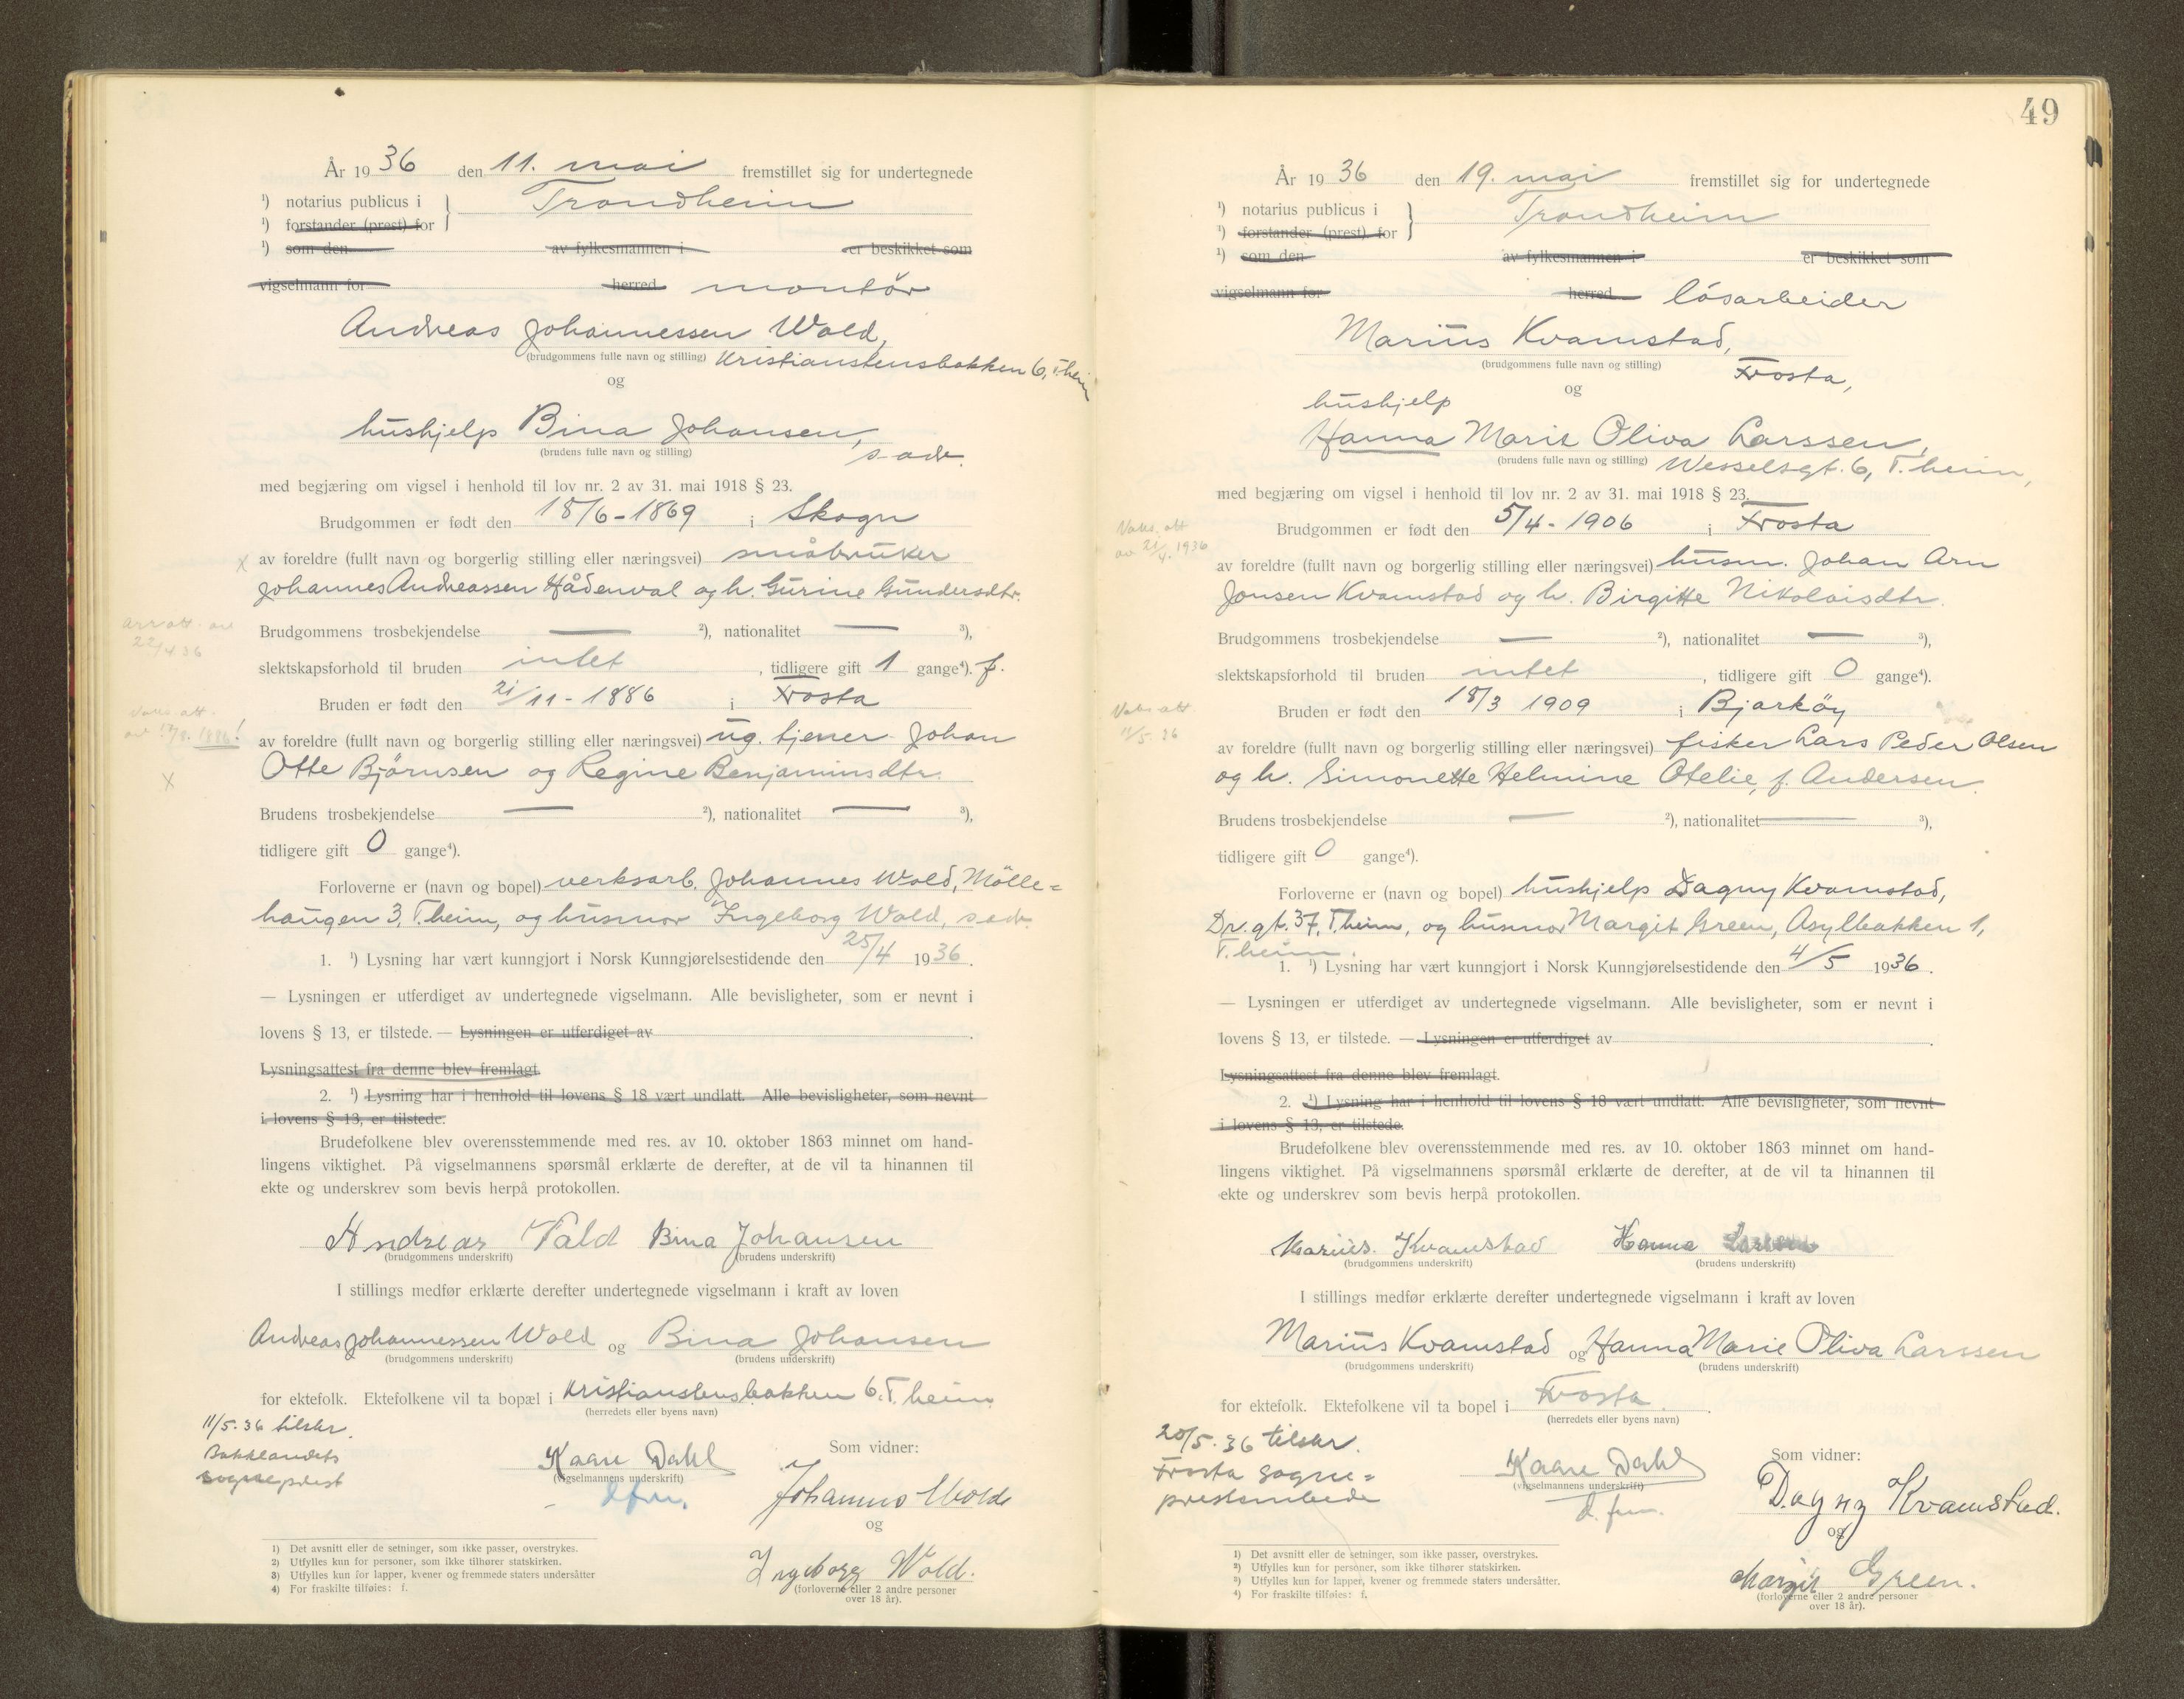 År 1936 den 11. mai fremstillet sig for undertegnede
¹) notarius publicus i Trondheim
¹) forstander (prest) for
¹) som den av fylkesmannen i er beskikket som
vigselmann for herred montör
Andreas Johannessen Wold,
(brudgommens fulle navn og stilling) Kristianstensbakken 6, T.heim
og
hushjelp Bina Johansen,
(brudens fulle navn og stilling) s. adr.
med begjæring om vigsel i henhold til lov nr. 2 av 31. mai 1918 § 23.
Brudgommen er født den 18/6-1869 i Skogn
x av foreldre (fullt navn og borgerlig stilling eller næringsvei) småbruker
Johannes Andreassen Hådenval og h. Gurine Gundersdtr.
Brudgommens trosbekjendelse — ²), nationalitet — ³),
22/4 36
slektskapsforhold til bruden intet, tidligere gift 1 gange⁴). f.
Bruden er født den 21/11-1886 i Frosta
Vaks. att.
av foreldre (fullt navn og borgerlig stilling eller næringsvei) ug. tjener Johan
Otte Björnsen og Regine Benjaminsdtr.
x
Brudens trosbekjendelse — ²), nationalitet — ³),
tidligere gift 0 gange⁴).
Forloverne er (navn og bopel) verksarb. Johannes Wold, Mölle=
haugen 3, T.heim, og husmor Ingeborg Wold, s. adr.
1. ¹) Lysning har vært kunngjort i Norsk Kunngjørelsestidende den 25/4 1936.
— Lysningen er utferdiget av undertegnede vigselmann. Alle bevisligheter, som er nevnt i
lovens § 13, er tilstede. — Lysningen er utferdiget av .
Lysningsattest fra denne blev fremlagt.
2. ¹) Lysning har i henhold til lovens § 18 vært undlatt. Alle bevisligheter, som nevnt
i lovens § 13, er tilstede.
Brudefolkene blev overensstemmende med res. av 10. oktober 1863 minnet om hand-
lingens viktighet. På vigselmannens spørsmål erklærte de derefter, at de vil ta hinannen til
ekte og underskrev som bevis herpå protokollen.
Andreas Vald Bina Johansen
(brudgommens underskrift) (brudens underskrift)
I stillings medfør erklærte derefter undertegnede vigselmann i kraft av loven
Andreas Johannessen Wold og Bina Johansen
(brudgommens underskrift) (brudens underskrift)
for ektefolk. Ektefolkene vil ta bopæl i Kristianstensbakken 6. T.heim
(herredets eller byens navn)
11/5.36 tilskr.
Bakklandets
sogneprest
Som vidner:
Kaare Dahl
(vigselmannens underskrift)
d.fm.
Johannes Wold
og
Ingeborg Wold.
(forloverne eller 2 andre personer
over 18 år).
1) Det avsnitt eller de setninger, som ikke passer, overstrykes.
2) Utfylles kun for personer, som ikke tilhører statskirken.
3) Utfylles kun for lapper, kvener og fremmede staters undersåtter
4) For fraskilte tilføies: f.
49
År 1936 den 19. mai fremstillet sig for undertegnede
¹) notarius publicus i Trondheim
¹) forstander (prest) for
¹) som den av fylkesmannen i er beskikket som
vigselmann for herred lösarbeider
Marius Kvamstad,
(brudgommens fulle navn og stilling) Frosta,
og
hushjelp
Hanna Marie Oliva Larssen,
(brudens fulle navn og stilling) Wesselsgt. 6, T.heim,
med begjæring om vigsel i henhold til lov nr. 2 av 31. mai 1918 § 23.
Brudgommen er født den 5/4-1906 i Frosta
Vaks. att
av 21/4. 1936
av foreldre (fullt navn og borgerlig stilling eller næringsvei) husm. Johan Arn
Jonsen Kvamstad og h. Birgitte Nikolaisdtr.
Brudgommens trosbekjendelse — ²), nationalitet — ³),
slektskapsforhold til bruden intet, tidligere gift 0 gange⁴).
Bruden er født den 18/3 1909 i Bjarköy
Vaks att
11/5. 36
av foreldre (fullt navn og borgerlig stilling eller næringsvei) fisker Lars Peder Olsen
og h. Simonette Helmine Otelie, f. Andersen.
Brudens trosbekjendelse — ²), nationalitet — ³),
tidligere gift 0 gange⁴).
Forloverne er (navn og bopel) hushjelp Dagny Kvamstad,
Dr.gt. 37, T.heim, og husmor Margit Green, Asylbakken 1,
T.heim.
1. ¹) Lysning har vært kunngjort i Norsk Kunngjørelsestidende den 4/5 1936.
— Lysningen er utferdiget av undertegnede vigselmann. Alle bevisligheter, som er nevnt i
lovens § 13, er tilstede. — Lysningen er utferdiget av .
Lysningsattest fra denne blev fremlagt.
2. ¹) Lysning har i henhold til lovens § 18 vært undlatt. Alle bevisligheter, som nevnt
i lovens § 13, er tilstede.
Brudefolkene blev overensstemmende med res. av 10. oktober 1863 minnet om hand-
lingens viktighet. På vigselmannens spørsmål erklærte de derefter, at de vil ta hinannen til
ekte og underskrev som bevis herpå protokollen.
Marius Kvamstad Hanna Larssen
(brudgommens underskrift) (brudens underskrift)
I stillings medfør erklærte derefter undertegnede vigselmann i kraft av loven
Marius Kvamstad og Hanna Marie Oliva Larssen
(brudgommens underskrift) (brudens underskrift)
for ektefolk. Ektefolkene vil ta bopel i Frosta.
(herredets eller byens navn)
20/5.36 tilskr.
Frosta sogne=
prestembede
Som vidner:
Kaare Dahl
(vigselmannens underskrift)
d. fm.
Dagny Kvamstad.
og
Margit Green.
(forloverne eller 2 andre personer
over 18 år).
1) Det avsnitt eller de setninger, som ikke passer, overstrykes.
2) Utfylles kun for personer, som ikke tilhører statskirken.
3) Utfylles kun for lapper, kvener og fremmede staters undersåtter.
4) For fraskilte tilføies: f.